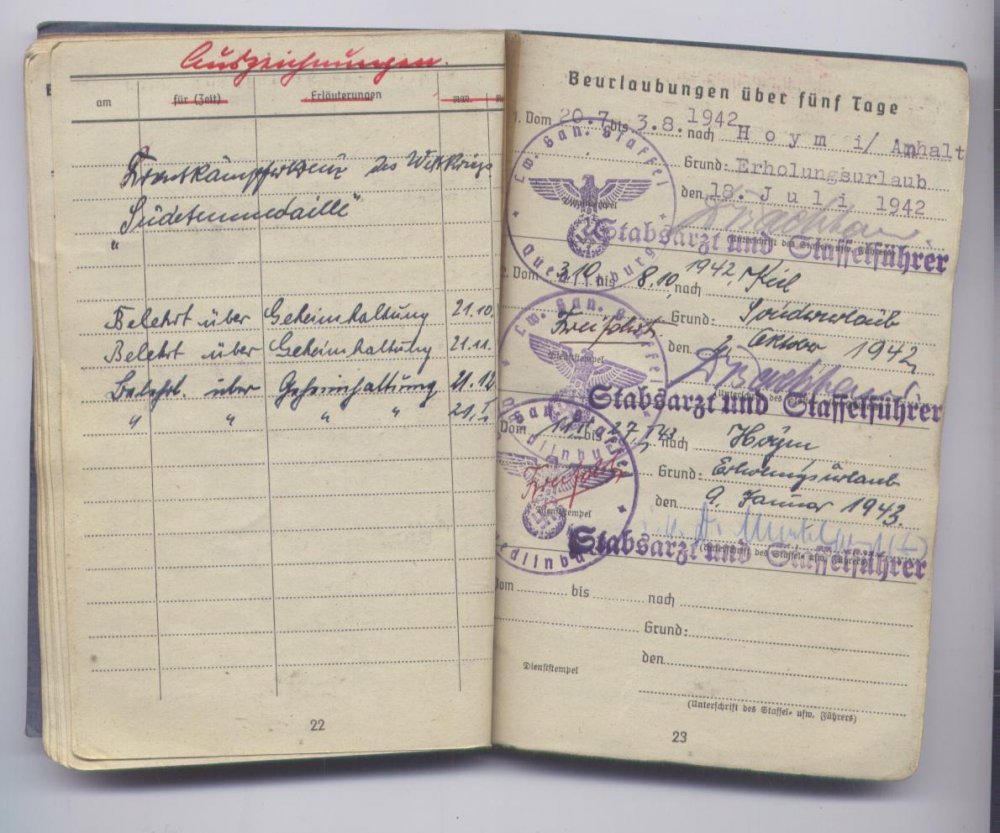 Auszeichnungen.
am
für (Zeit)
Erläuterungen
Frontkämpferkreuz des Weltkriegs
"Sudetenmedaille"
Belehrt über Geheimhaltung 21.10.
Belehrt über Geheimhaltung 21.11.
Belehrt über Geheimhaltung 21.12
" " " " 21.I.
22
Beurlaubungen über fünf Tage
1. Vom 20.7. bis 3.8. 1942 nach Hoym i/ Anhalt
Grund: Erholungsurlaub
den 18. Juli 1942
Stabsarzt und Staffelführer
Lw. San. Staffel
Quedlinburg
Vom 3.10 bis 8.10. 1942 nach Kiel
Grund: Sonderurlaub
den 2. Oktober 1942
Lw. San. Staffel
Dienststempel
Stabsarzt und Staffelführer
Vom bis 27.I.43 nach Hoym
Grund: Erholungsurlaub
den 9. Januar 1943.
San. Staffel
Dienststempel
Stabsarzt und Staffelführer
Vom bis nach
Grund:
den
Dienststempel
(Unterschrift des Staffel- usw. Führers)
23